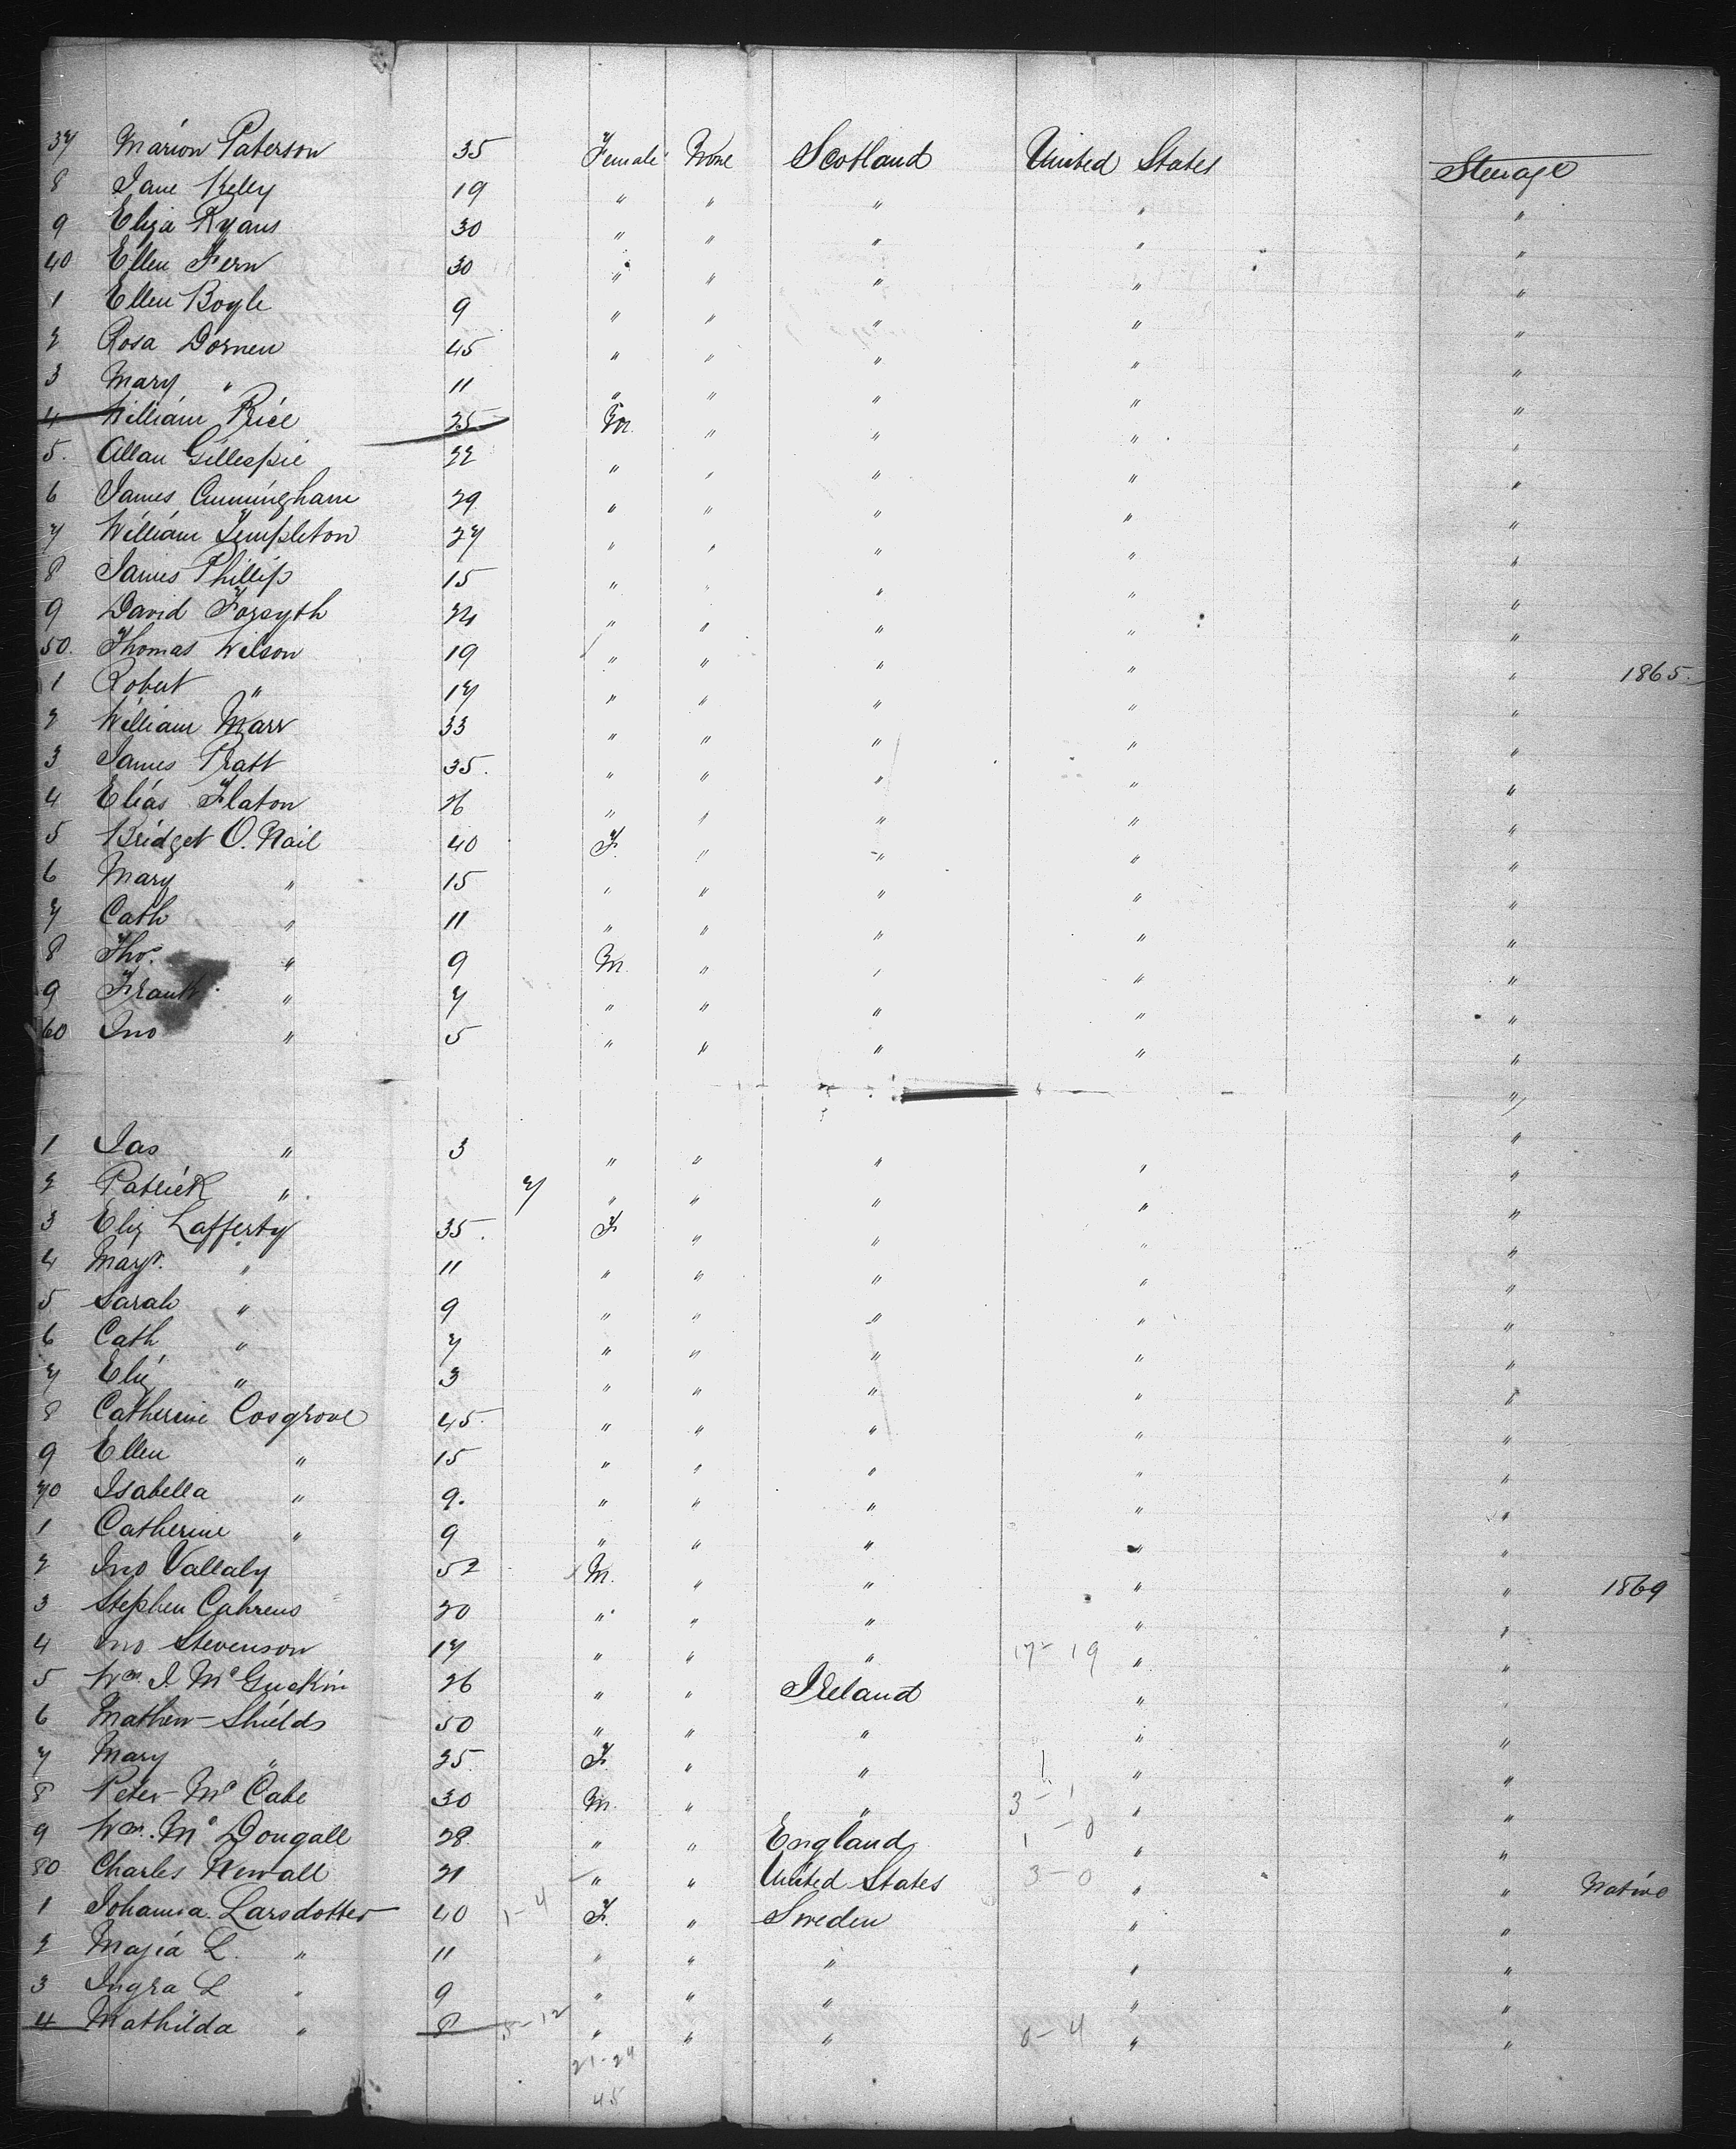 37 Marion Paterson 35 Female None Scotland United States Steerage
8 Jane Kelly 19 " " " " "
9 Eliza Ryans 30 " " " " "
40 Ellen Fern 30 " " " " "
1 Ellen Boyle 9 " " " " "
2 Rosa Dornen 45 " " " " "
3 Mary " 11 " " " " "
4 William Rice 25 M. " " " "
5. Allan Gillespie 22 " " " " "
6 James Cunningham 29 " " " " "
7 William Templeton 27 " " " " "
8 James Phillip 15 " " " " "
9 David Forsyth 24 " " " " "
50. Thomas Wilson 19 " " " " "
1 Robert " 17 " " " " " 1865.
2 William Marr 33 " " " " "
3 James Pratt 35. " " " " "
4 Elias Flaton 26 " " " " "
5 Bridget O. Nail 40 F. " " " "
6 Mary " 15 " " " " "
7 Cath " 11 " " " " "
8 Thos. " 9 M. " " " "
9 Frank " 7 " " " " "
60 Jno " 5 " " " " "
1 Jas " 3 " " " " "
2 Patrick " 7 " " " " "
3 Eliz Lafferty 35. F. " " " "
4 Margt. " 11 " " " " "
5 Sarah " 9 " " " " "
6 Cath " 7 " " " " "
7 Eliz " 3 " " " " "
8 Catherine Cosgrove 45. " " " " "
9 Ellen " 15 " " " " "
70 Isabella " 9. " " " " "
1 Catherine " 9 " " " " "
2 Jno Vallaly 52 M. " " " " 1869
3 Stephen Cahrens 20 " " " " "
4 Jno Stevenson 17 " " " 17-19 " "
5 Wm. J. McGuckin 26 " " Ireland " "
6 Mathew Shields 50 " " " " "
7 Mary " 25. F. " " 1 " "
8 Peter McCabe 30 M. " " 3-1 " "
9 Wm. McDougall 28 " " England 1-0 " "
80 Charles Newall 21 " " United States 3-0 " " Native
1 Johanna Larsdotter 40 1-4 F. " Sweden " "
2 Majia L. " 11 " " " " "
3 Ingra L " 9 " " " " "
4 Mathilda " 8 5-12 " " " 0-4 " "
21-24
45